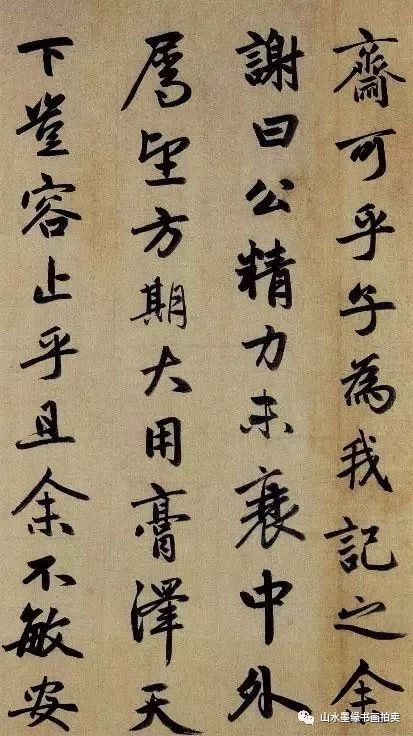 齋可乎子為我記之余
謝曰公精力未衰中外
属望方期大用膏澤天
下豈容止乎且余不敏安
山水墨缘书画拍卖